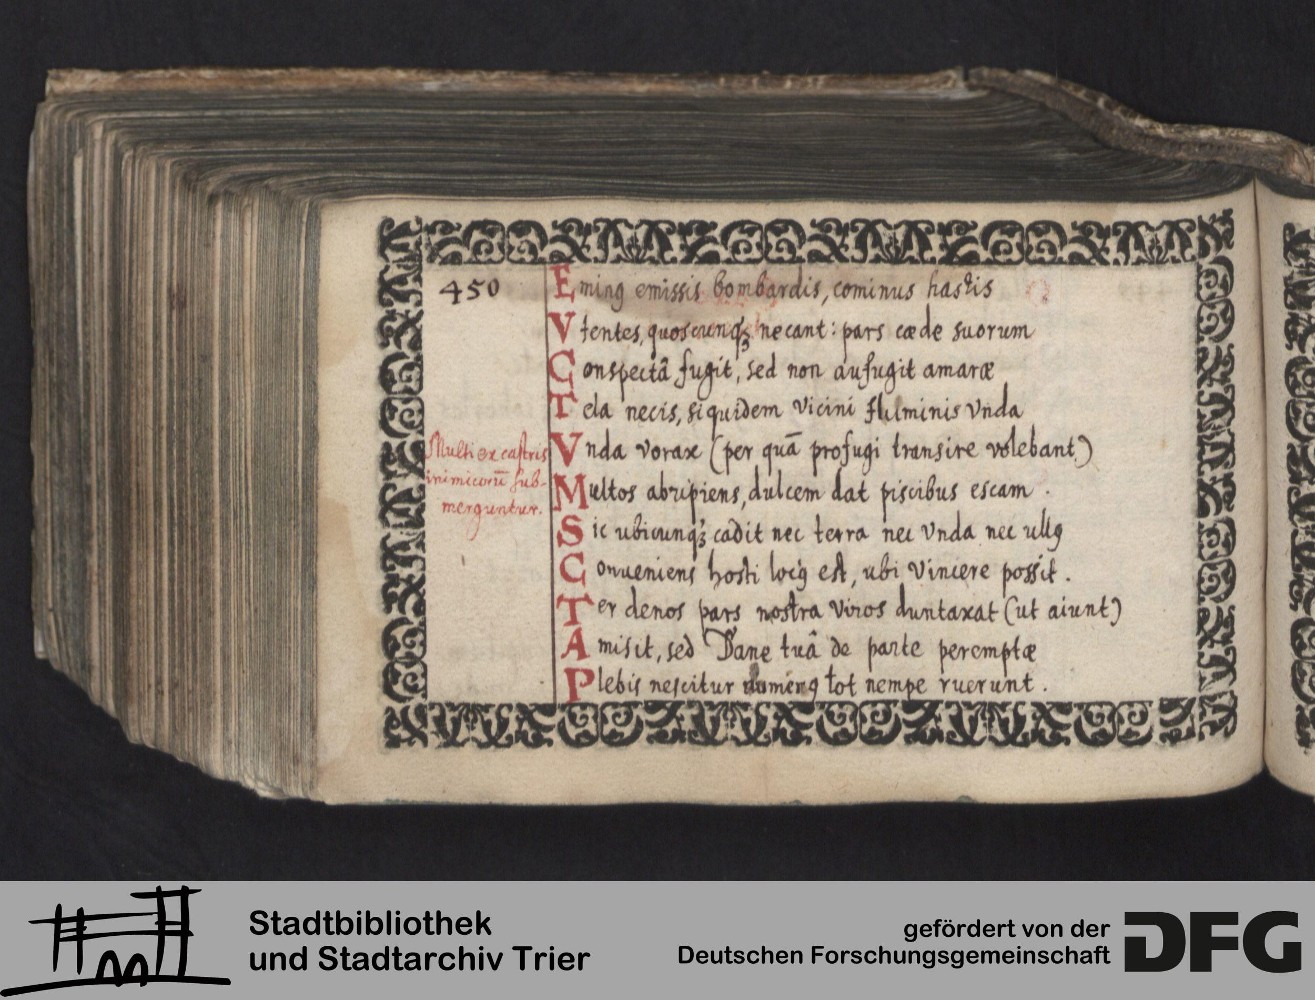 450
Eminꝰ emissis bombardis, cominus hastis
Vtentes, quoscunqꝫ necant: pars cæde suorum
Conspectâ fugit, sed non aufugit amaræ
Tela necis, siquidem vicini fluminis vnda
Vnda vorax (per quā profugi transire volebant)
Multos abripiens, dulcem dat piscibus escam.
Sic ubicunqꝫ cadit nec terra nec vnda nec ullꝰ
Conueniens hosti locꝰ est, ubi vincere possit.
Ter denos pars nostra viros duntaxat (ut aiunt)
Amisit, sed Dane tuâ de parte peremptæ
Plebis nescitur numerꝰ tot nempe ruerunt.
Multi ex castris
inimicorū sub-
merguntur.
Stadtbibliothek
und Stadtarchiv Trier
gefördert von der
Deutschen Forschungsgemeinschaft
DFG